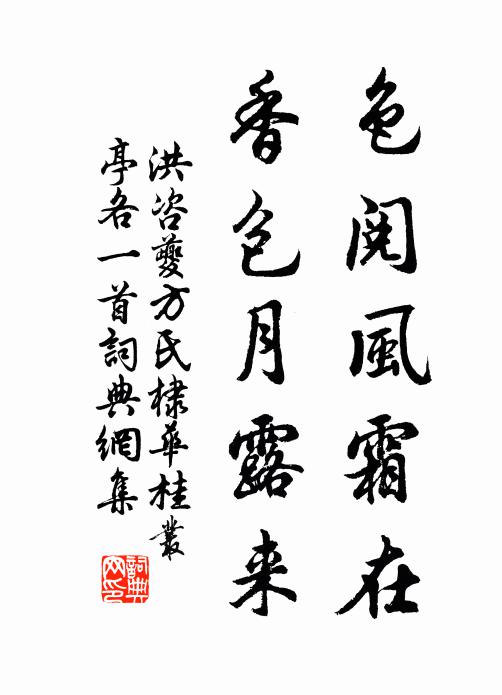 色閱風霜在
香包月露来
洪咨夔方氏棣華桂叢
亭各一首詞典網集
詞典
网印